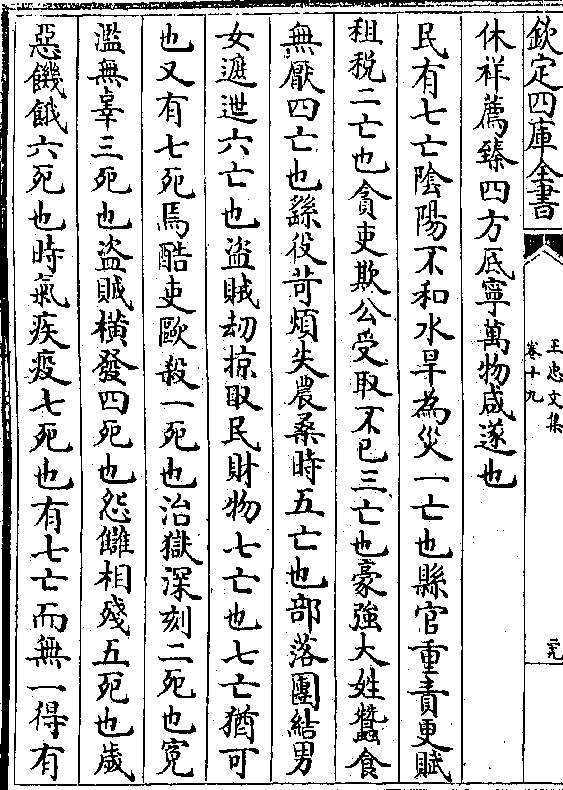 欽定四庫全書
王忠文集
卷十九
元
休祥薦臻四方底寧萬物咸遂也
民有七亡陰陽不和水旱為災一亡也縣官重責更賦
租税二亡也貪吏欺公受取不已三亡也豪強大姓蠶食
無厭四亡也繇役苛煩失農桑時五亡也部落團結男
女遮迣六亡也盜賊刧掠取民財物七亡也七亡猶可
也又有七死焉酷吏歐殺一死也治獄深刻二死也寃
濫無辜三死也盜賊橫發四死也怨讎相殘五死也歲
惡饑餓六死也時氣疾疫七死也有七亡而無一得有